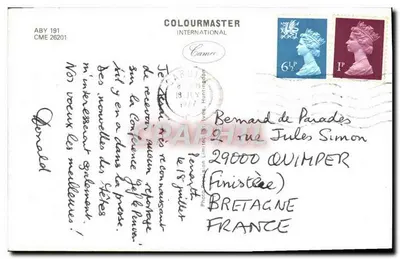 ABY 191
CME 26201
COLOURMASTER
INTERNATIONAL
Cameo
6½P
1P
Penarth
le 18 juillet
Je serai très reconnaissant
de recevoir aucun reportage
sur la Conférence
s'il y en a dans la presse.
Des nouvelles des fêtes
m'intéressent également.
Nos voeux les meilleures!
Donald
Bernard de Parades
2 rue Jules Simon
29000 QUIMPER
(Finistère)
BRETAGNE
FRANCE